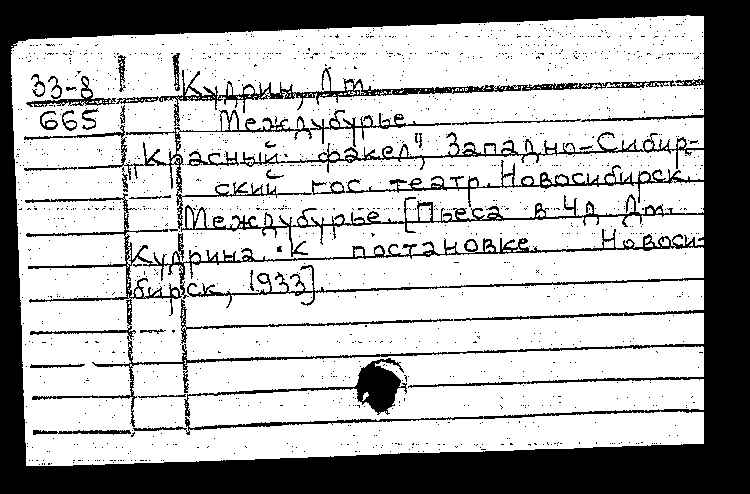 33-8 Кудрин, Дт.
665 Междубурье.
"Красный факел", Западно-Сибир-
ский гос. театр. Новосибирск.
Междубурье. [Пьеса в 4д. Дт.
Кудрина. К постановке. Новоси-
бирск, 1933].